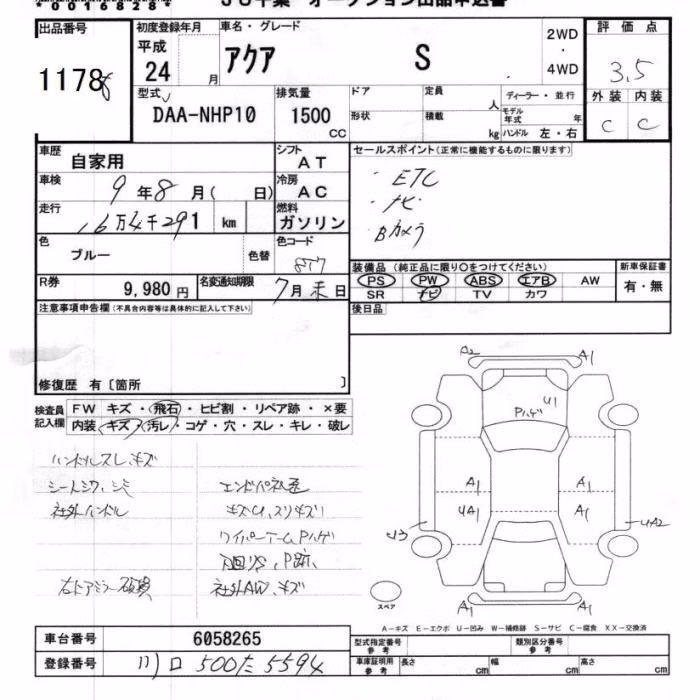 000168284 JU千葉 オークション出品申込書
出品番号 初度登録年月 車名・グレード 2WD・4WD 評価点
1178 平成24 月 アクア S 3.5
型式 排気量 ドア 定員 人 ディーラー・並行 外装 内装
DAA-NHP10 1500 CC 形状 積載 kg モデル年式 年 ハンドル 左・右 C C
車歴 自家用 シフト AT セールスポイント(正常に機能するものに限ります)
車検 9年8月( 日) 冷房 AC ・ETC
走行 16万4千291 km 燃料 ガソリン ・ナビ
Bカメラ
色 ブルー 色替 色コード 8T7
装備品(純正品に限り○をつけてください) 新車保証書
R券 9,980円 名変通知期限 7月末日 PS PW ABS エアB AW 有・無
SR ナビ TV カワ
注意事項申告欄(不具合内容等は具体的に記入して下さい) 後日品
修復歴 有〔箇所 〕
検査員記入欄 FW キズ・飛石・ヒビ割・リペア跡・×要
内装・キズ・汚レ・コゲ・穴・スレ・キレ・破レ
ハンドルスレ、キズ
シートシワ、シミ
社外ハンドル
キズU、スリキズ
ワイパーアームPハゲ
右ドアミラー破損 社外AW、キズ
A2 A1
U1
Pハゲ
A1 A1
UA1 A1
U3 UA2
A1 A1
スペア
A-キズ E-エクボ U-凹み W-補修跡 S-サビ C-腐食 XX-交換済
車台番号 6058265 型式指定番号 参考 類別区分番号 参考
登録番号 川口500た5594 車庫証明用 参考 長さ cm 幅 cm 高さ cm